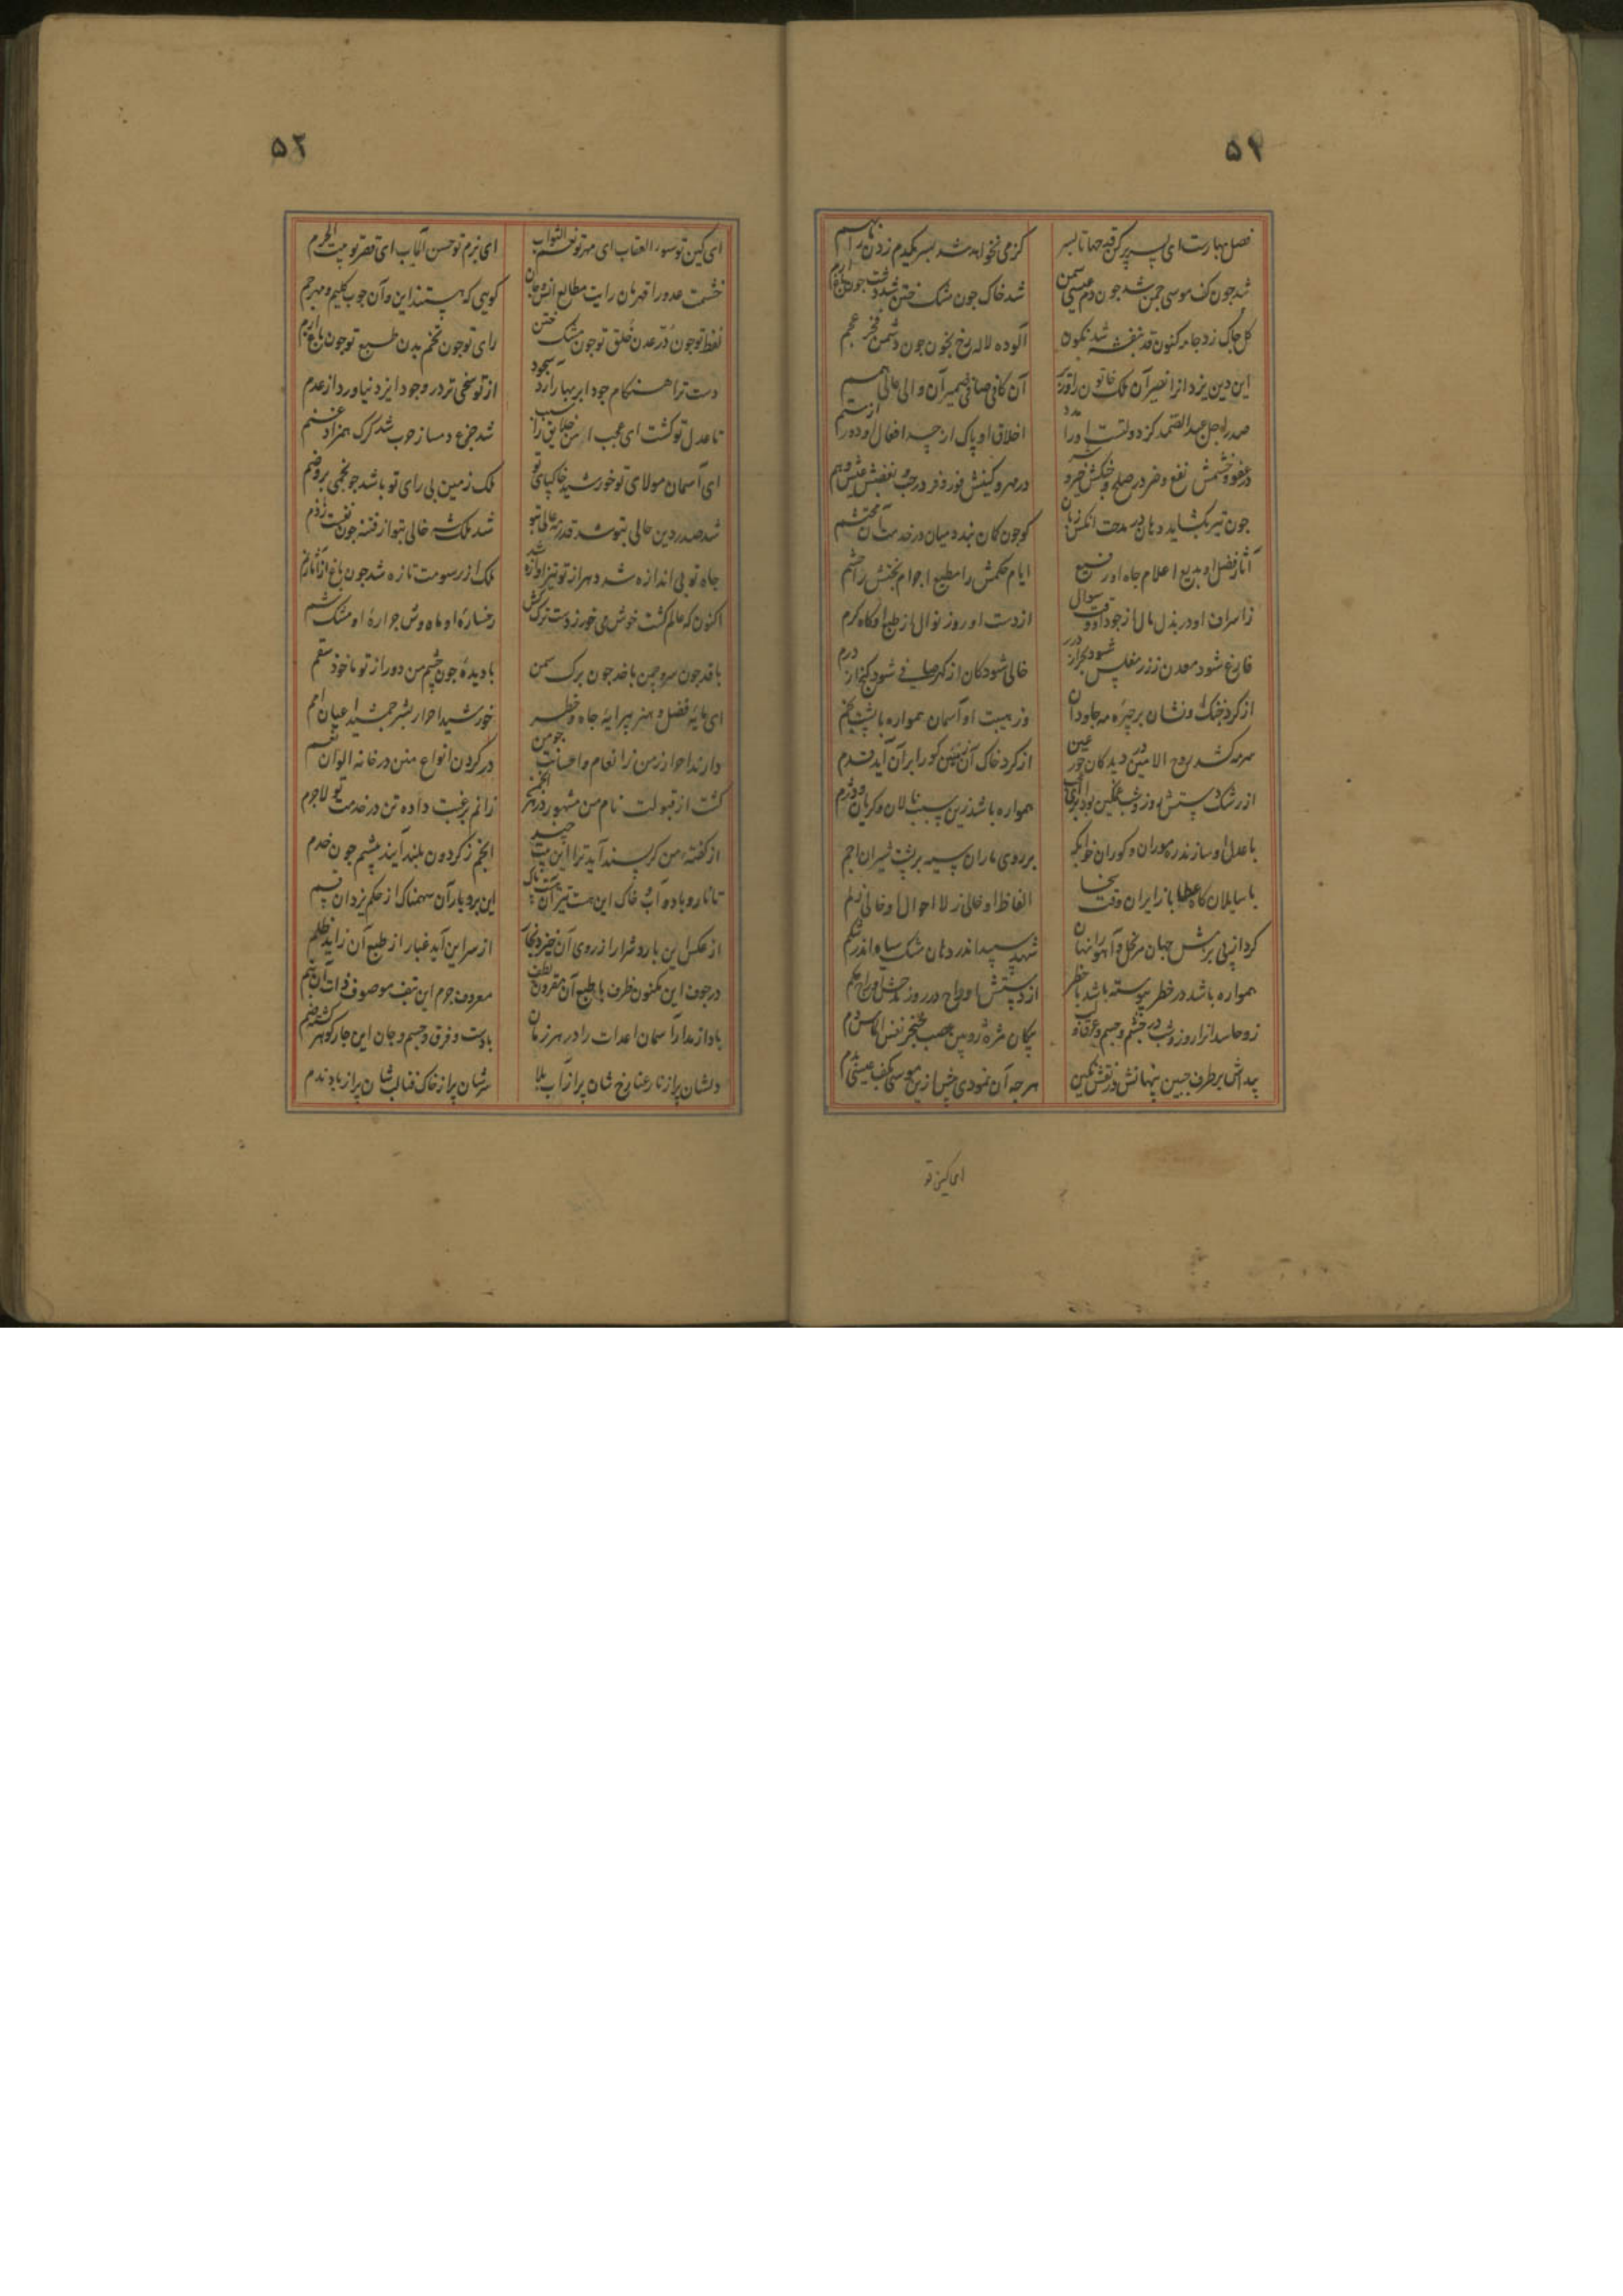 ۵۴
فصل بهارست ای پسر پر کن قدحها تا بسر
کز می نخواهد شد بسر یکدم زدن
شد چون کف موسی چمن شد چون دم عیسی سمن
شد خاک چون مشک ختن شد
گل چاک زد جامه کنون قد بنفشه شد نگون
آلوده لاله رخ بخون چون دشمن فخر عجم
این دین یزد از انصیر آن ملک خاتون را وزیر
آن کافی صافی ضمیر آن والی عالی همم
صدر اجل عبدالصمد کز دولتست او را مدد
اخلاق او پاک از حسد افعال او دور از ستم
در عفو و خشمش نفع و ضر در صلح و جنگش خیر و شر
در مهر و کینش فوز و فر در حب و بغضش
چون تیر بگشاید دهان در مدحت آنکس زمان
کو چون کمان بندد میان در خدمت آن محتشم
آثار فضل او بدیع اعلام جاه او رفیع
ایام حکمش را مطیع اجرام بختش را حشم
ز اسراف او در بذل مال از جود او وقت سوال
از دست او روز نوال از طبع او گاه کرم
فارغ شود معدن ز زر مفلس شود بحر از درر
خالی شود کان از گهر صافی شود گنج از درم
از گرد خنگ او نشان بر چهره مه جاودان
وز هیبت او آسمان همواره با پشت بخم
سرمه کشد روح الامین در دیدگان حور عین
از گرد خاک آن زمین کو را بر آن آید قدم
از رشک دستش روز و شب غمگین بود
همواره باشد زین سبب نالان و گریان
با عدل او سازند ره موران و گوران خوابگه
بر روی ماران سیه بر پشت شیران اجم
با سایلان گاه عطا با زایران وقت سخا
الفاظ او خالی ز لا احوال او خالی ز لم
کرد از پی برش جهان مر نحل و آهو را نهان
شهد سپید اندر دهان مشک سیاه اندر شکم
همواره باشد در خطر پیوسته باشد با خطر
زو حاسدان را روز و شب در چشم و جسم و عرق و لب
پیکان مژه زوبین عصب خنجر نفس الماس دم
پیداش بر طرف جبین پنهانش در نقش نگین
هر چه آن نمودی پیش ازین موسی بکف عیسی بدم
ای کین تو
۵۲
ای کین تو سوء العقاب ای مهر تو نعم الثواب
ای بزم تو حسن المآب ای قصر تو بیت الحرم
خشمت عدو را قهرمان رایت مطالع
گویی که هستند این و آن چوب کلیم و مهر جم
لفظ تو چون در عدن خلق تو چون مشک ختن
رای تو چون نجم یمن طبع تو چون باغ ارم
دست ترا هنگام جود ابر بهار آرد سجود
از تو سخی تر در وجود ایزد نیاورد از عدم
تا عدل تو گشت ای عجب امن خلایق را سبب
شد جزع دمساز حوب شد گرگ همزاد غنم
ای آسمان مولای تو خورشید خاک پای تو
ملک زمین بی رای تو باشد چو نجمی بر وضم
شد صدر دین حالی بتو شد قدر عالی بتو
شد ملک شه خالی بتو از فتنه چون
جاه تو بی اندازه شد دهر از تو پر آوازه شد
ملک از رسومت تازه شد چون باغ از آثار نم
اکنون که عالم گشت خوش می خور ز دست ترک کش
رخساره او ماه وش جواره او مشک شم
با قد چون سرو چمن با خد چون برگ سمن
با دیده چون چشم من دور از تو ماخوذ سقم
ای مایه فضل و هنر پیرایه جاه و خطر
خورشید احرار بشر جمشید اعیان امم
دارند احرار زمن ز انعام و احسانت چو من
در گردن انواع منن در خانه الوان نعم
گشت از قبولت نام من مشهور در هر انجمن
زانم برغبت داده تن در خدمت تو لاجرم
از گفته من گر پسند آید ترا این بیت چند
انجم ز گردون بلند آیند پیشم چون خدم
تا نار و باد و آب و خاک این هست تیز آن تابناک
این برد بار آن سهمناک از حکم یزدان قسم
از عکس این بارد شرار از روی آن خیزد بخار
از سر این آید غبار از طبع آن زاید ظلم
در جوف این مکنون طرف با طبع آن مقرون لطف
معروف جرم این بتف موصوف ذات آن بنم
بادا ز مدار آسمان اعدات را در هر زمان
با دست و فرق و جسم و جان این چار گوهر گشته ضم
دلشان پر از نار عنا رخ شان پر از آب بلا
سرشان پر از خاک فنا لب شان پر از باد ندم